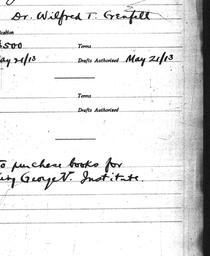 Dr. Wilfred T. Grenfell
$500 Terms
May 21/13 Drafts Authorized May 21/13
Terms
Drafts Authorized
to purchase books for
King George V. Institute.